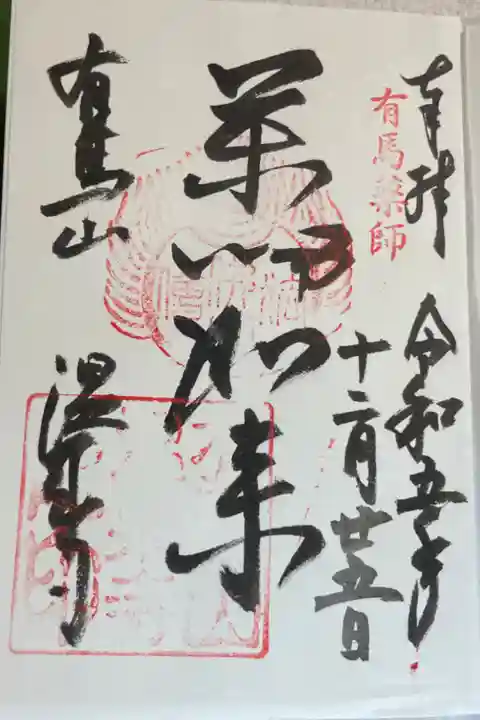 奉拝
有馬薬師
令和五年
十二月廿五日
薬師如来
有馬山
温泉寺